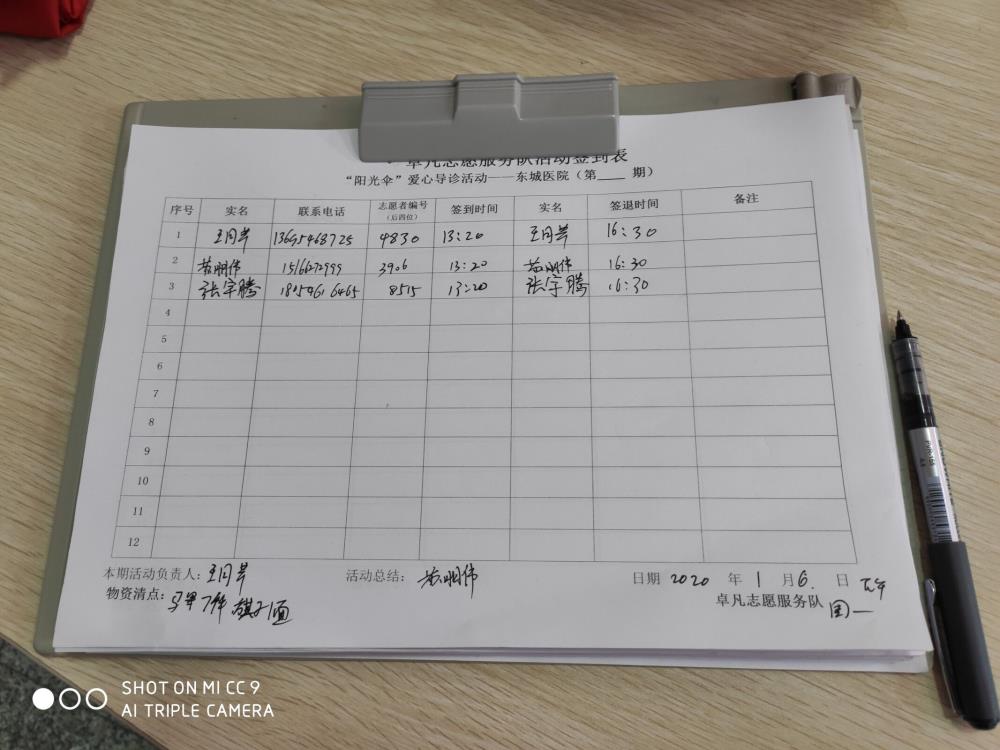 卓凡志愿服务队活动签到表
“阳光伞”爱心导诊活动——东城医院（第____ 期）
序号 实名 联系电话 志愿者编号（后四位） 签到时间 实名 签退时间 备注
1 4830 13:20 16:30
2 3906 13:20 16:30
3 张宇腾 8515 13:20 张宇腾 16:30
4
5
6
7
8
9
10
11
12
本期活动负责人： 活动总结： 日期 2020 年 1 月 6. 日 下午
物资清点：马甲7件 旗子1面 卓凡志愿服务队 周一
SHOT ON MI CC 9
AI TRIPLE CAMERA